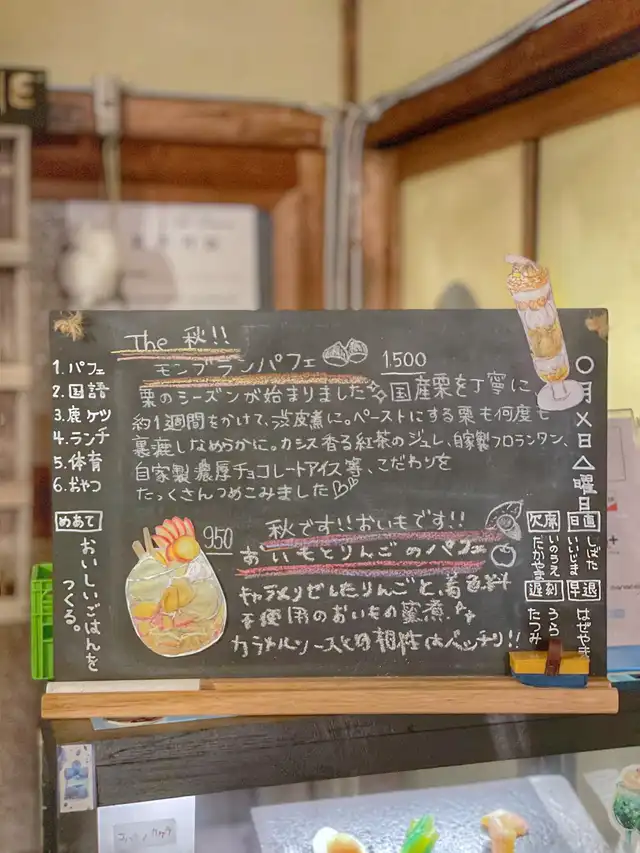 The 秋!!
モンブランパフェ 1500
栗のシーズンが始まりました 国産栗を丁寧に
約1週間をかけて、渋皮煮に。ペーストにする栗も何度も
裏漉しなめらかに。カシス香る紅茶のジュレ、自家製フロランタン、
自家製濃厚チョコレートアイス等、こだわりを
たっくさんつめこみました
秋です!!おいもです!!
950 おいもとりんごのパフェ
キャラメリゼしたりんごと、着色料
不使用のおいもの蜜煮。
カラメルソースとの相性はバッチリ!!
1. パフェ
2. 国語
3. 鹿ケツ
4. ランチ
5. 体育
6. おやつ
めあて
おいしいごはんを
つくる。
○月×日△曜日
日直 しばた
いいじま
欠席 いのうえ
だかやま
早退 はぜやま
遅刻 うら
たつみ